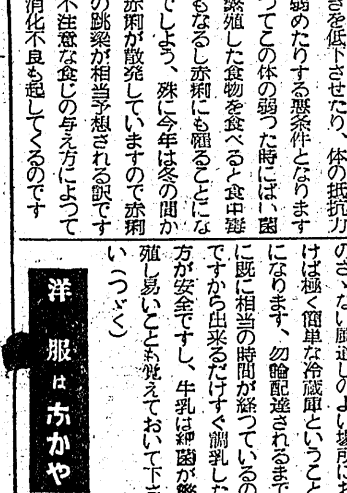 さを低下させたり、体の抵抗力
弱めたりする悪条件となります
つてこの体の弱つた時にばい菌
繁殖した食物を食べると食中毒
もなるし赤痢にも罹ることにな
でしよう、殊に今年は冬の間か
赤痢が散発していますので赤痢
の跳梁が相当予想される訳です
不注意な食じの与え方によつて
消化不良も起してくるのです
のさゝない風通しのよい場所にお
けば極く簡単な冷蔵庫ということ
になります、勿論配達されるまで
に既に相当の時間が経つているの
ですから出来るだけすぐ調乳した
方が安全ですし、牛乳は細菌が繁
殖し易いことも覚えておいて下さ
い（つゞく）
洋服はあかや